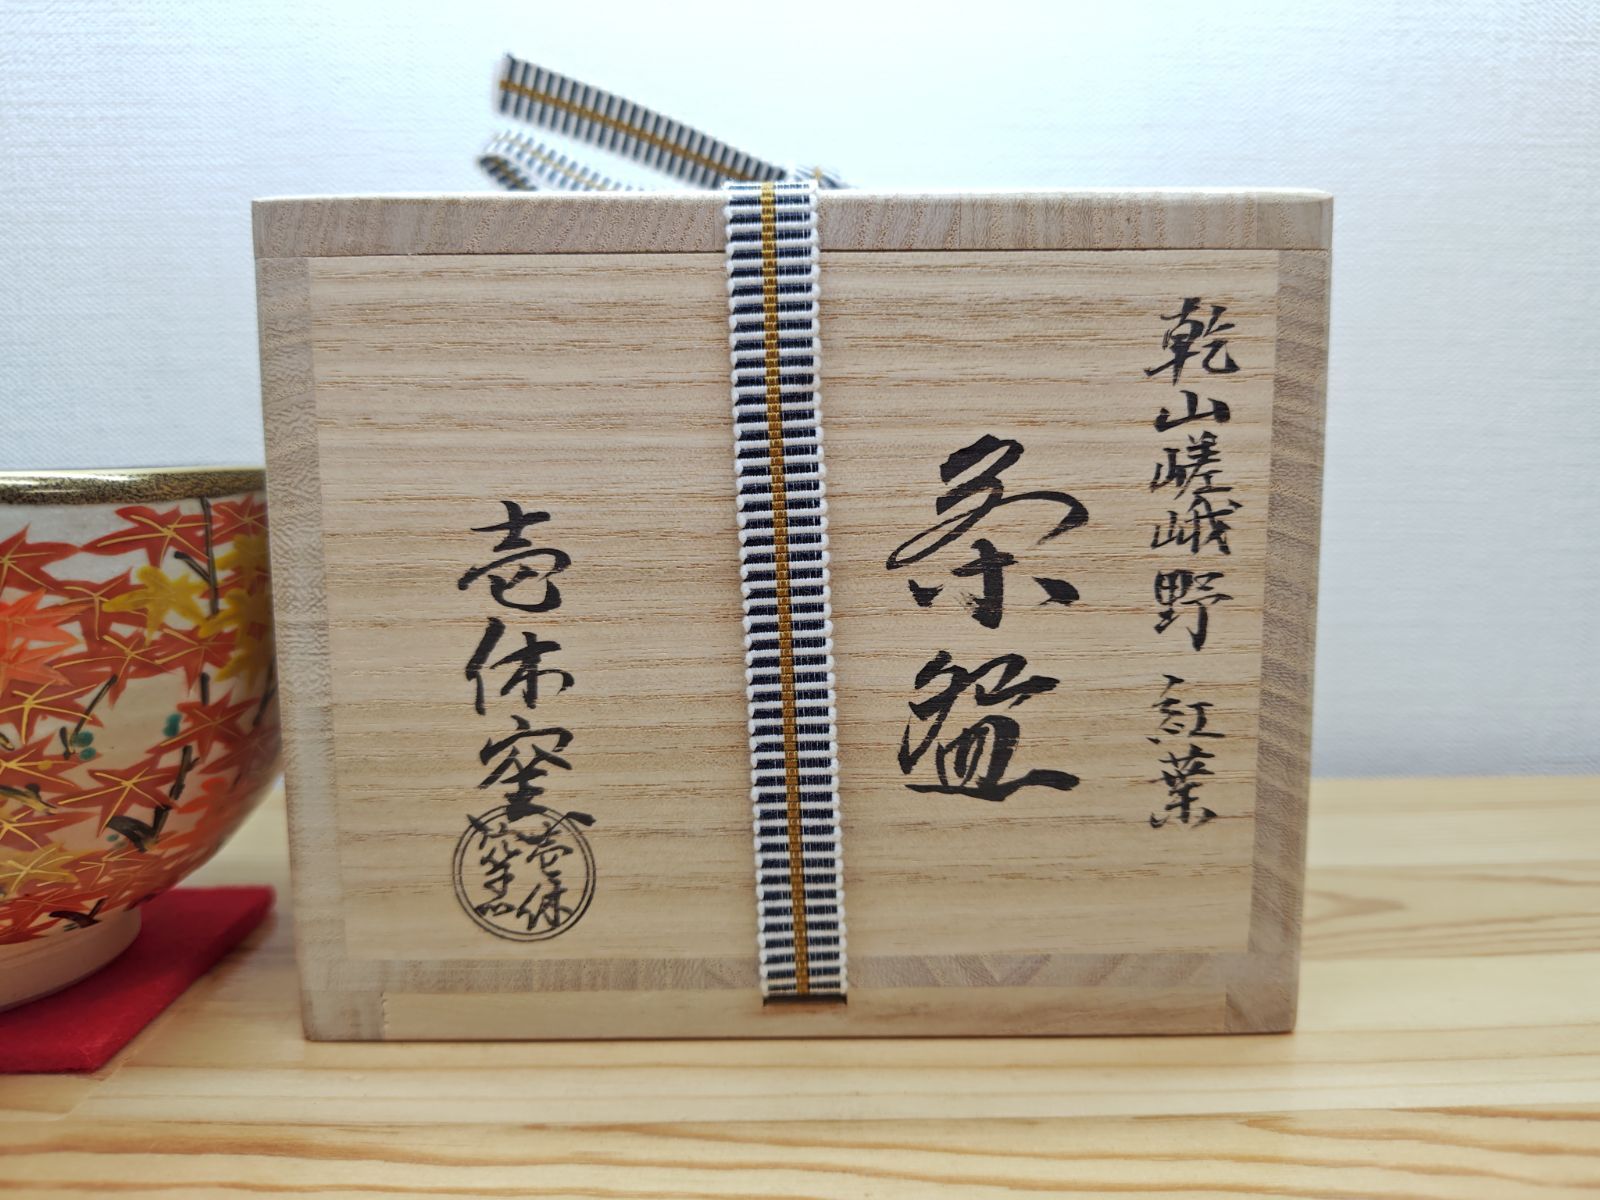 乾山嵯峨野 紅葉
茶盌
壱休窯
壱休